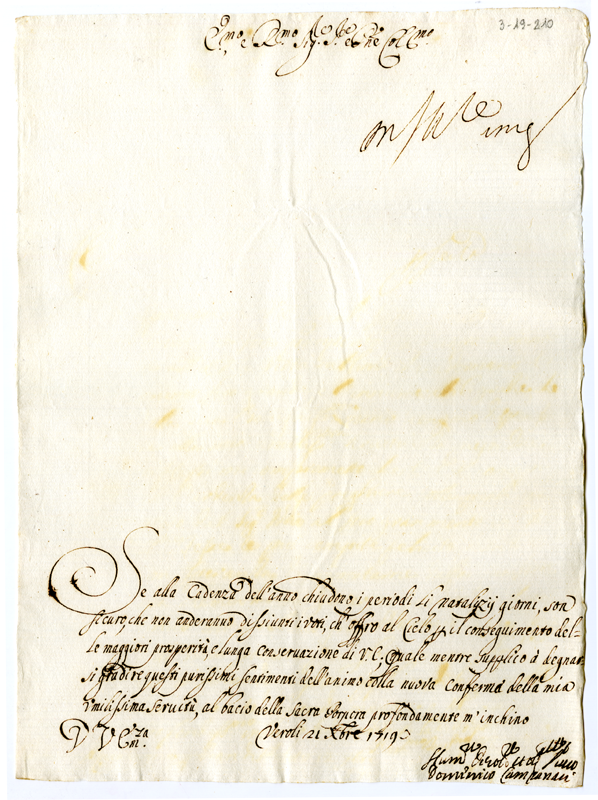 3-19-210
E.mo e R.mo Sig.re Sig.re e P.ne Col.mo
Se alla Cadenza dell'anno chiudono i periodi li natalizij giorni, son
sicuro, che non anderanno disgiunti i voti, ch'offro al Cielo p il conseguimento del-
le maggiori prosperità, e lunga conservazione di V.E., Quale mentre supplico à degnar-
si gradire questi purissimi sentimenti dell'animo colla nuova Conferma della mia
Vmilissima servitù, al bacio della Sacra Porpora profondamente m'inchino
D V Em.za Veroli 21 Xbre 1719
Hum.
Domenico Campanari